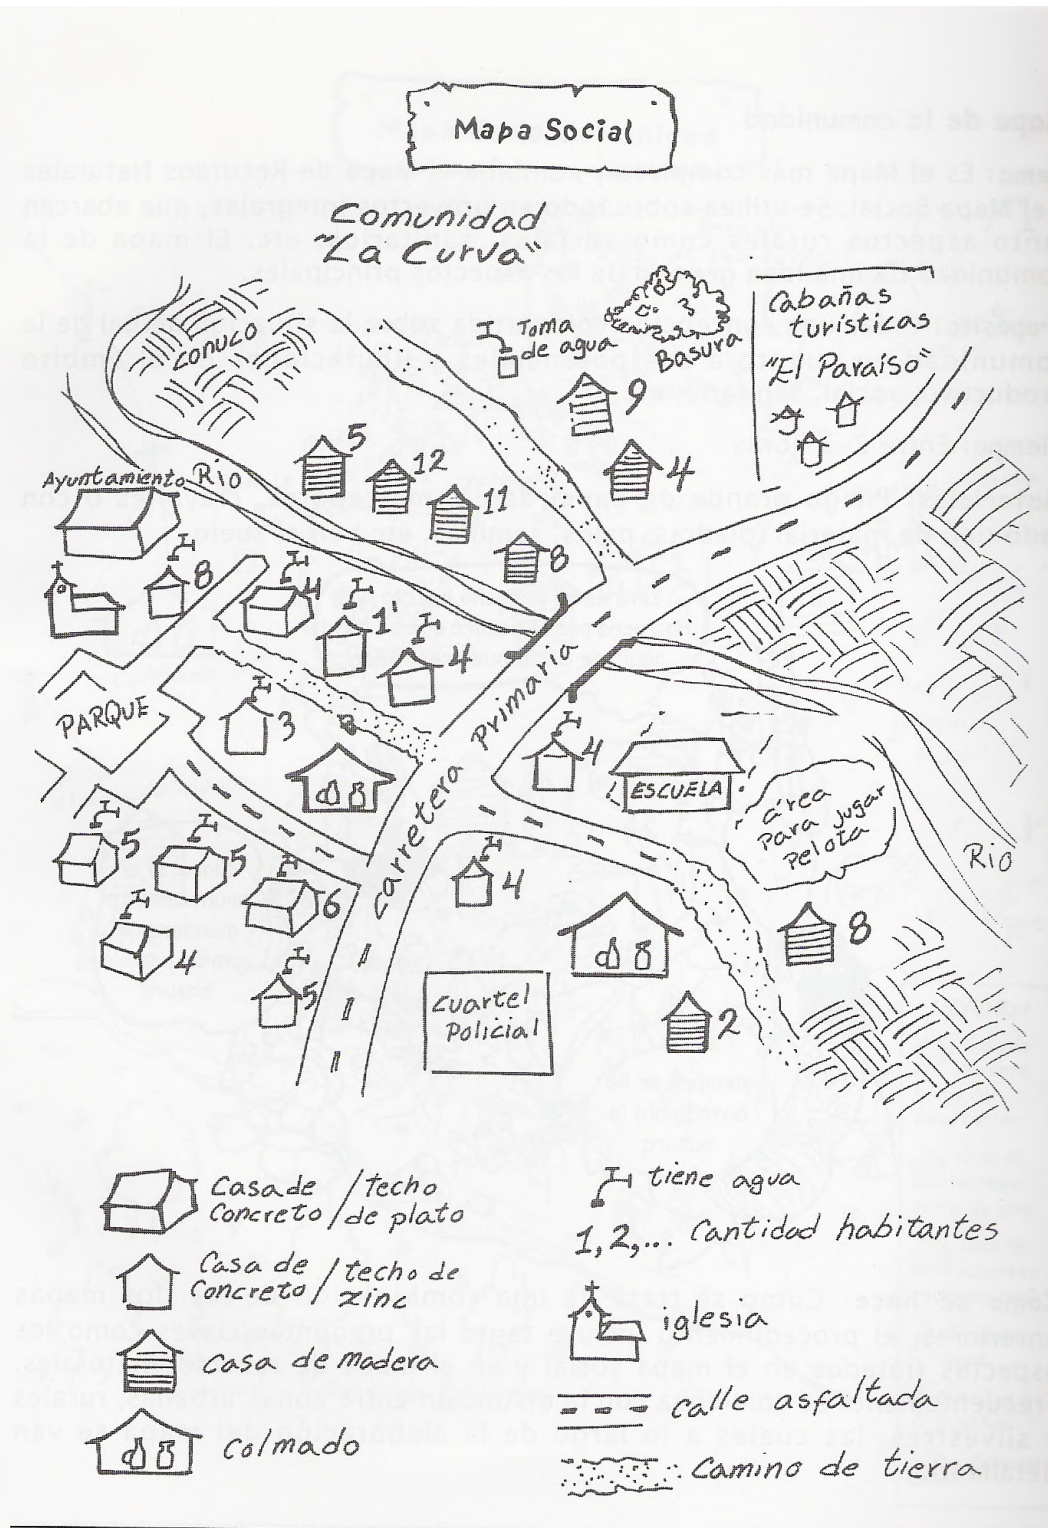 Mapa Social
Comunidad
"La Curva"
Conuco
Toma
de agua
Basura
Cabañas
turísticas
"El Paraiso"
9
5
12
11
4
8
Ayuntamiento
Rio
8
4
1
4
PARQUE
3
Carretera Primaria
4
ESCUELA
área
Para jugar
Pelota
Rio
5
5
6
4
5
4
8
2
Cuartel
Policial
Casa de / techo
Concreto / de plato
Casa de
Concreto / techo de
zinc
Casa de madera
Colmado
tiene agua
1, 2, ... Cantidad habitantes
iglesia
Calle asfaltada
Camino de tierra